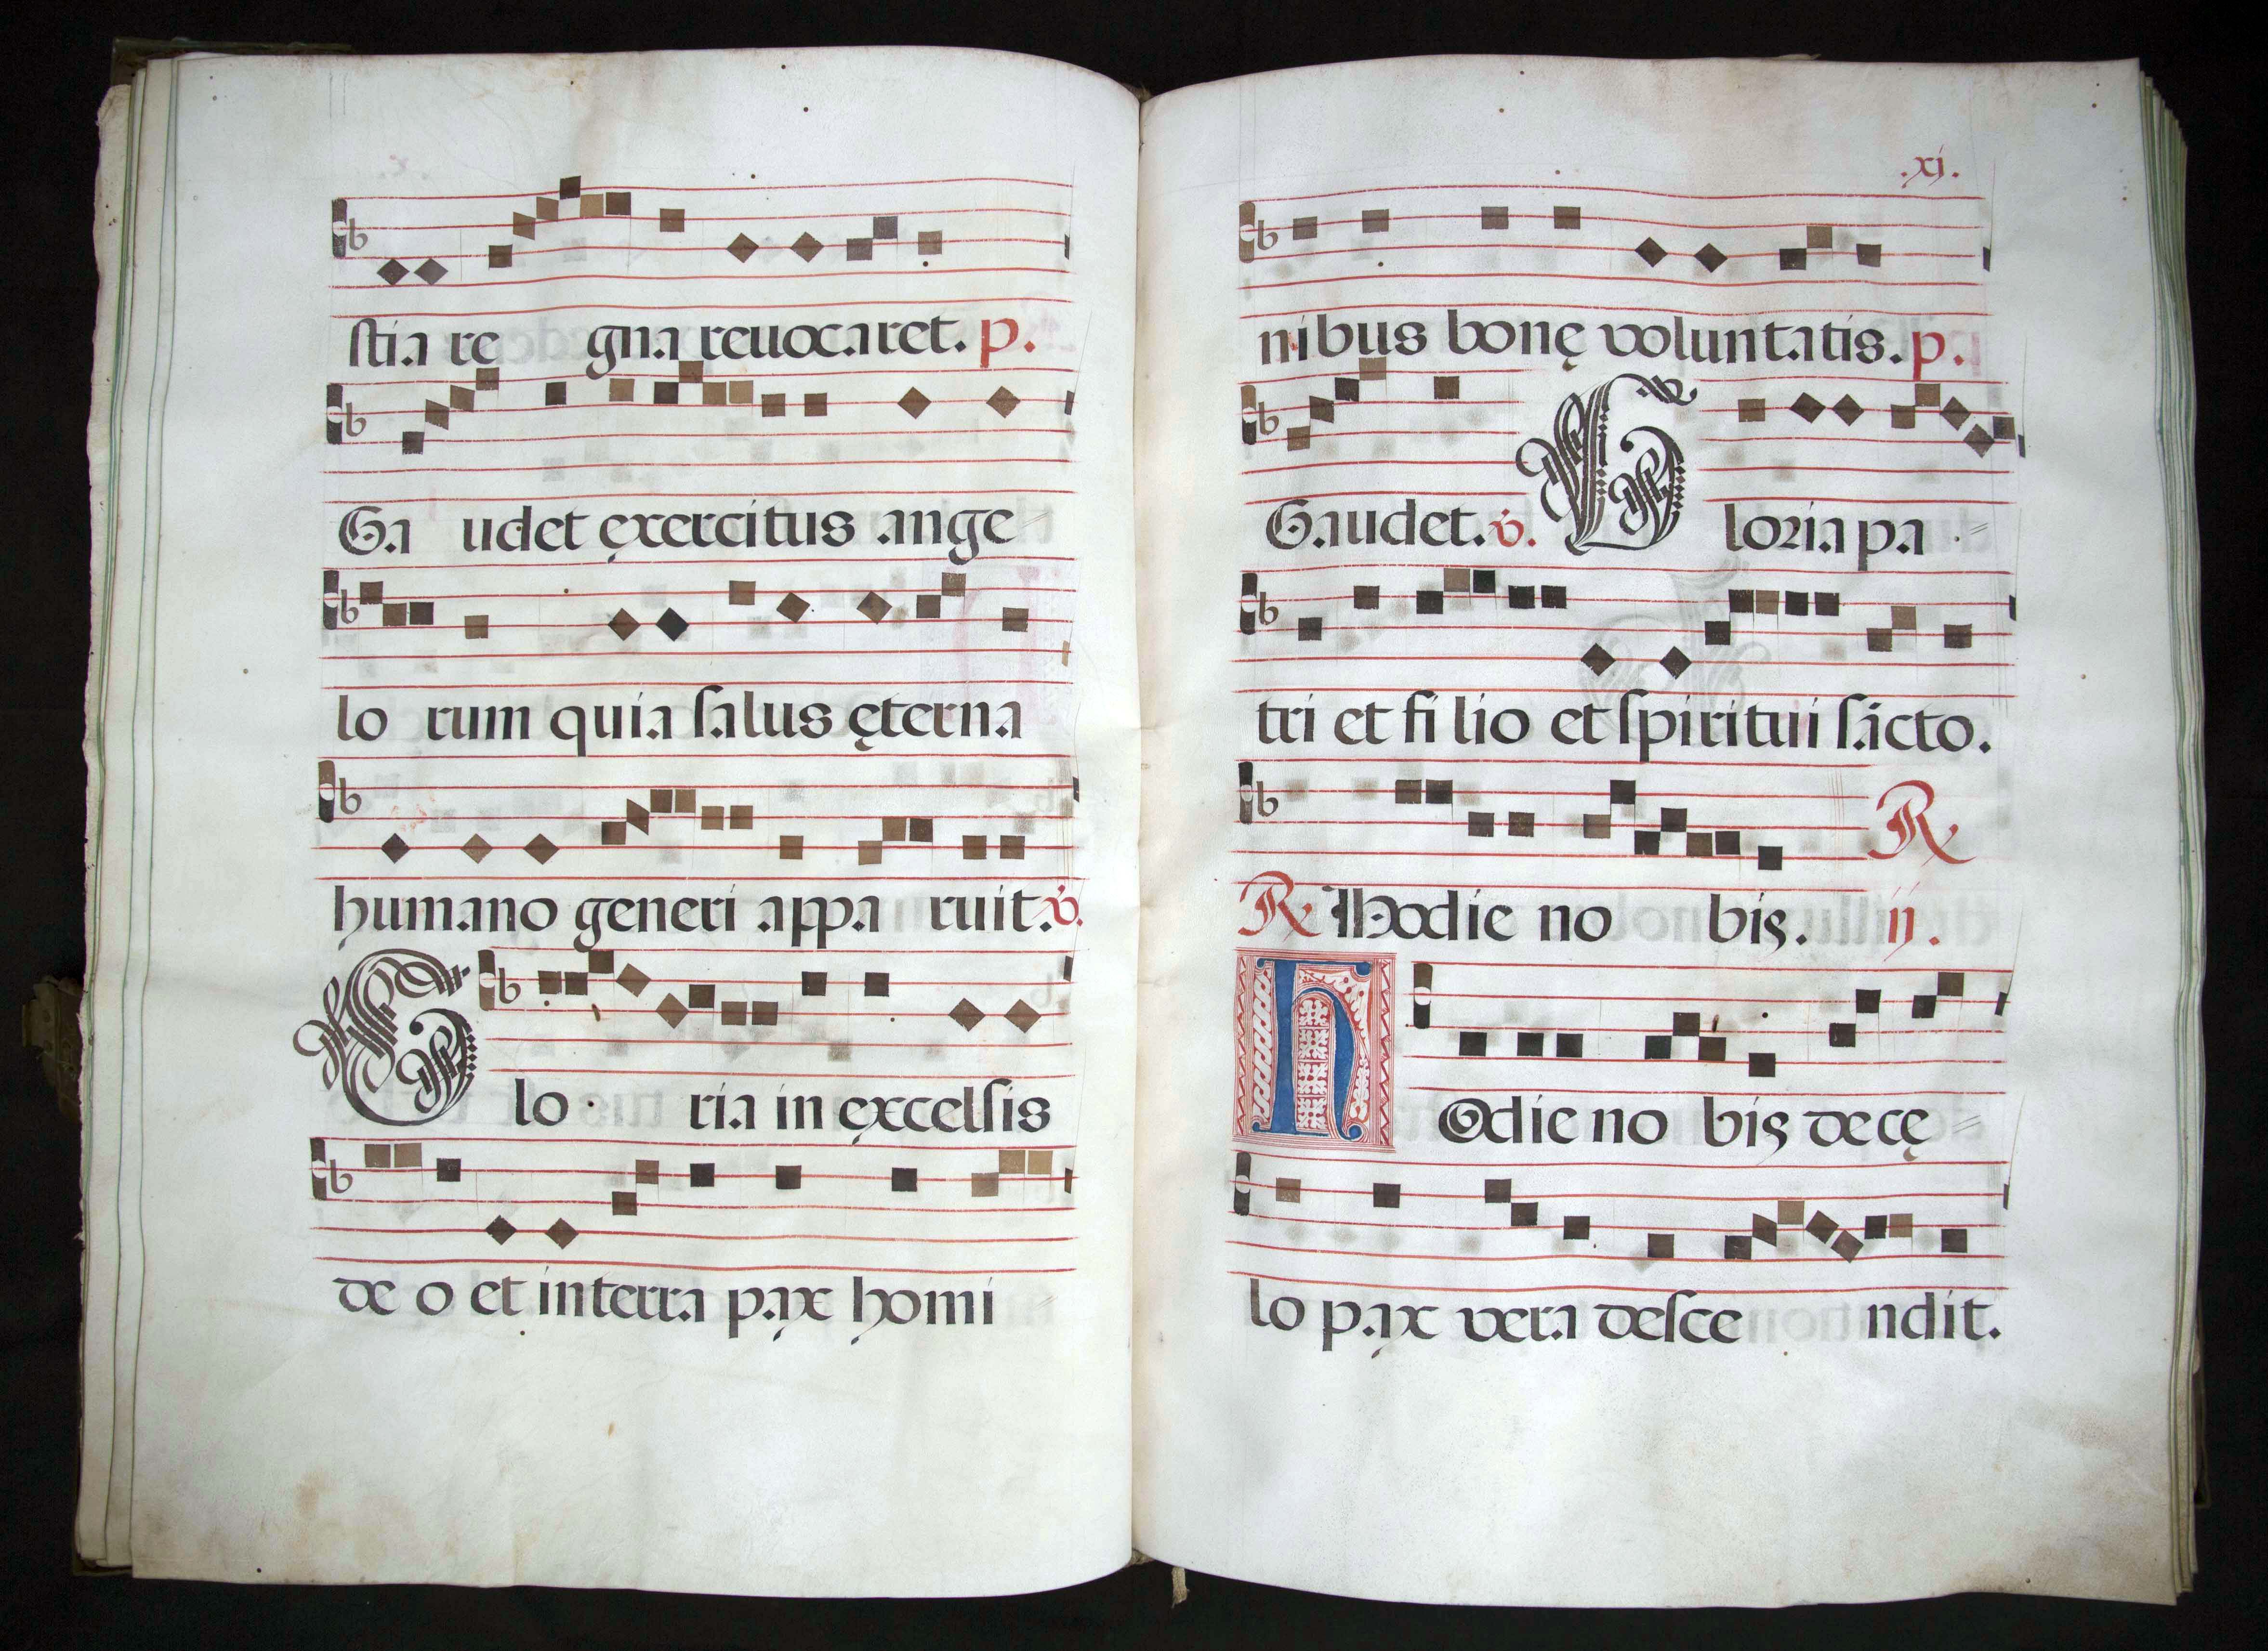 stia re gna reuocaret. p.
Ga udet exercitus ange
lo rum quia salus ęterna
humano generi appa ruit. v.
G lo ria in excelsis
de o et in terra pax homi
.xi.
nibus bonę voluntatis. p.
Gaudet. v. G loria pa
tri et fi lio et spiritui sācto.
R
R Hodie no bis. ij.
h Odie no bis de cę
lo pax vera desce ndit.